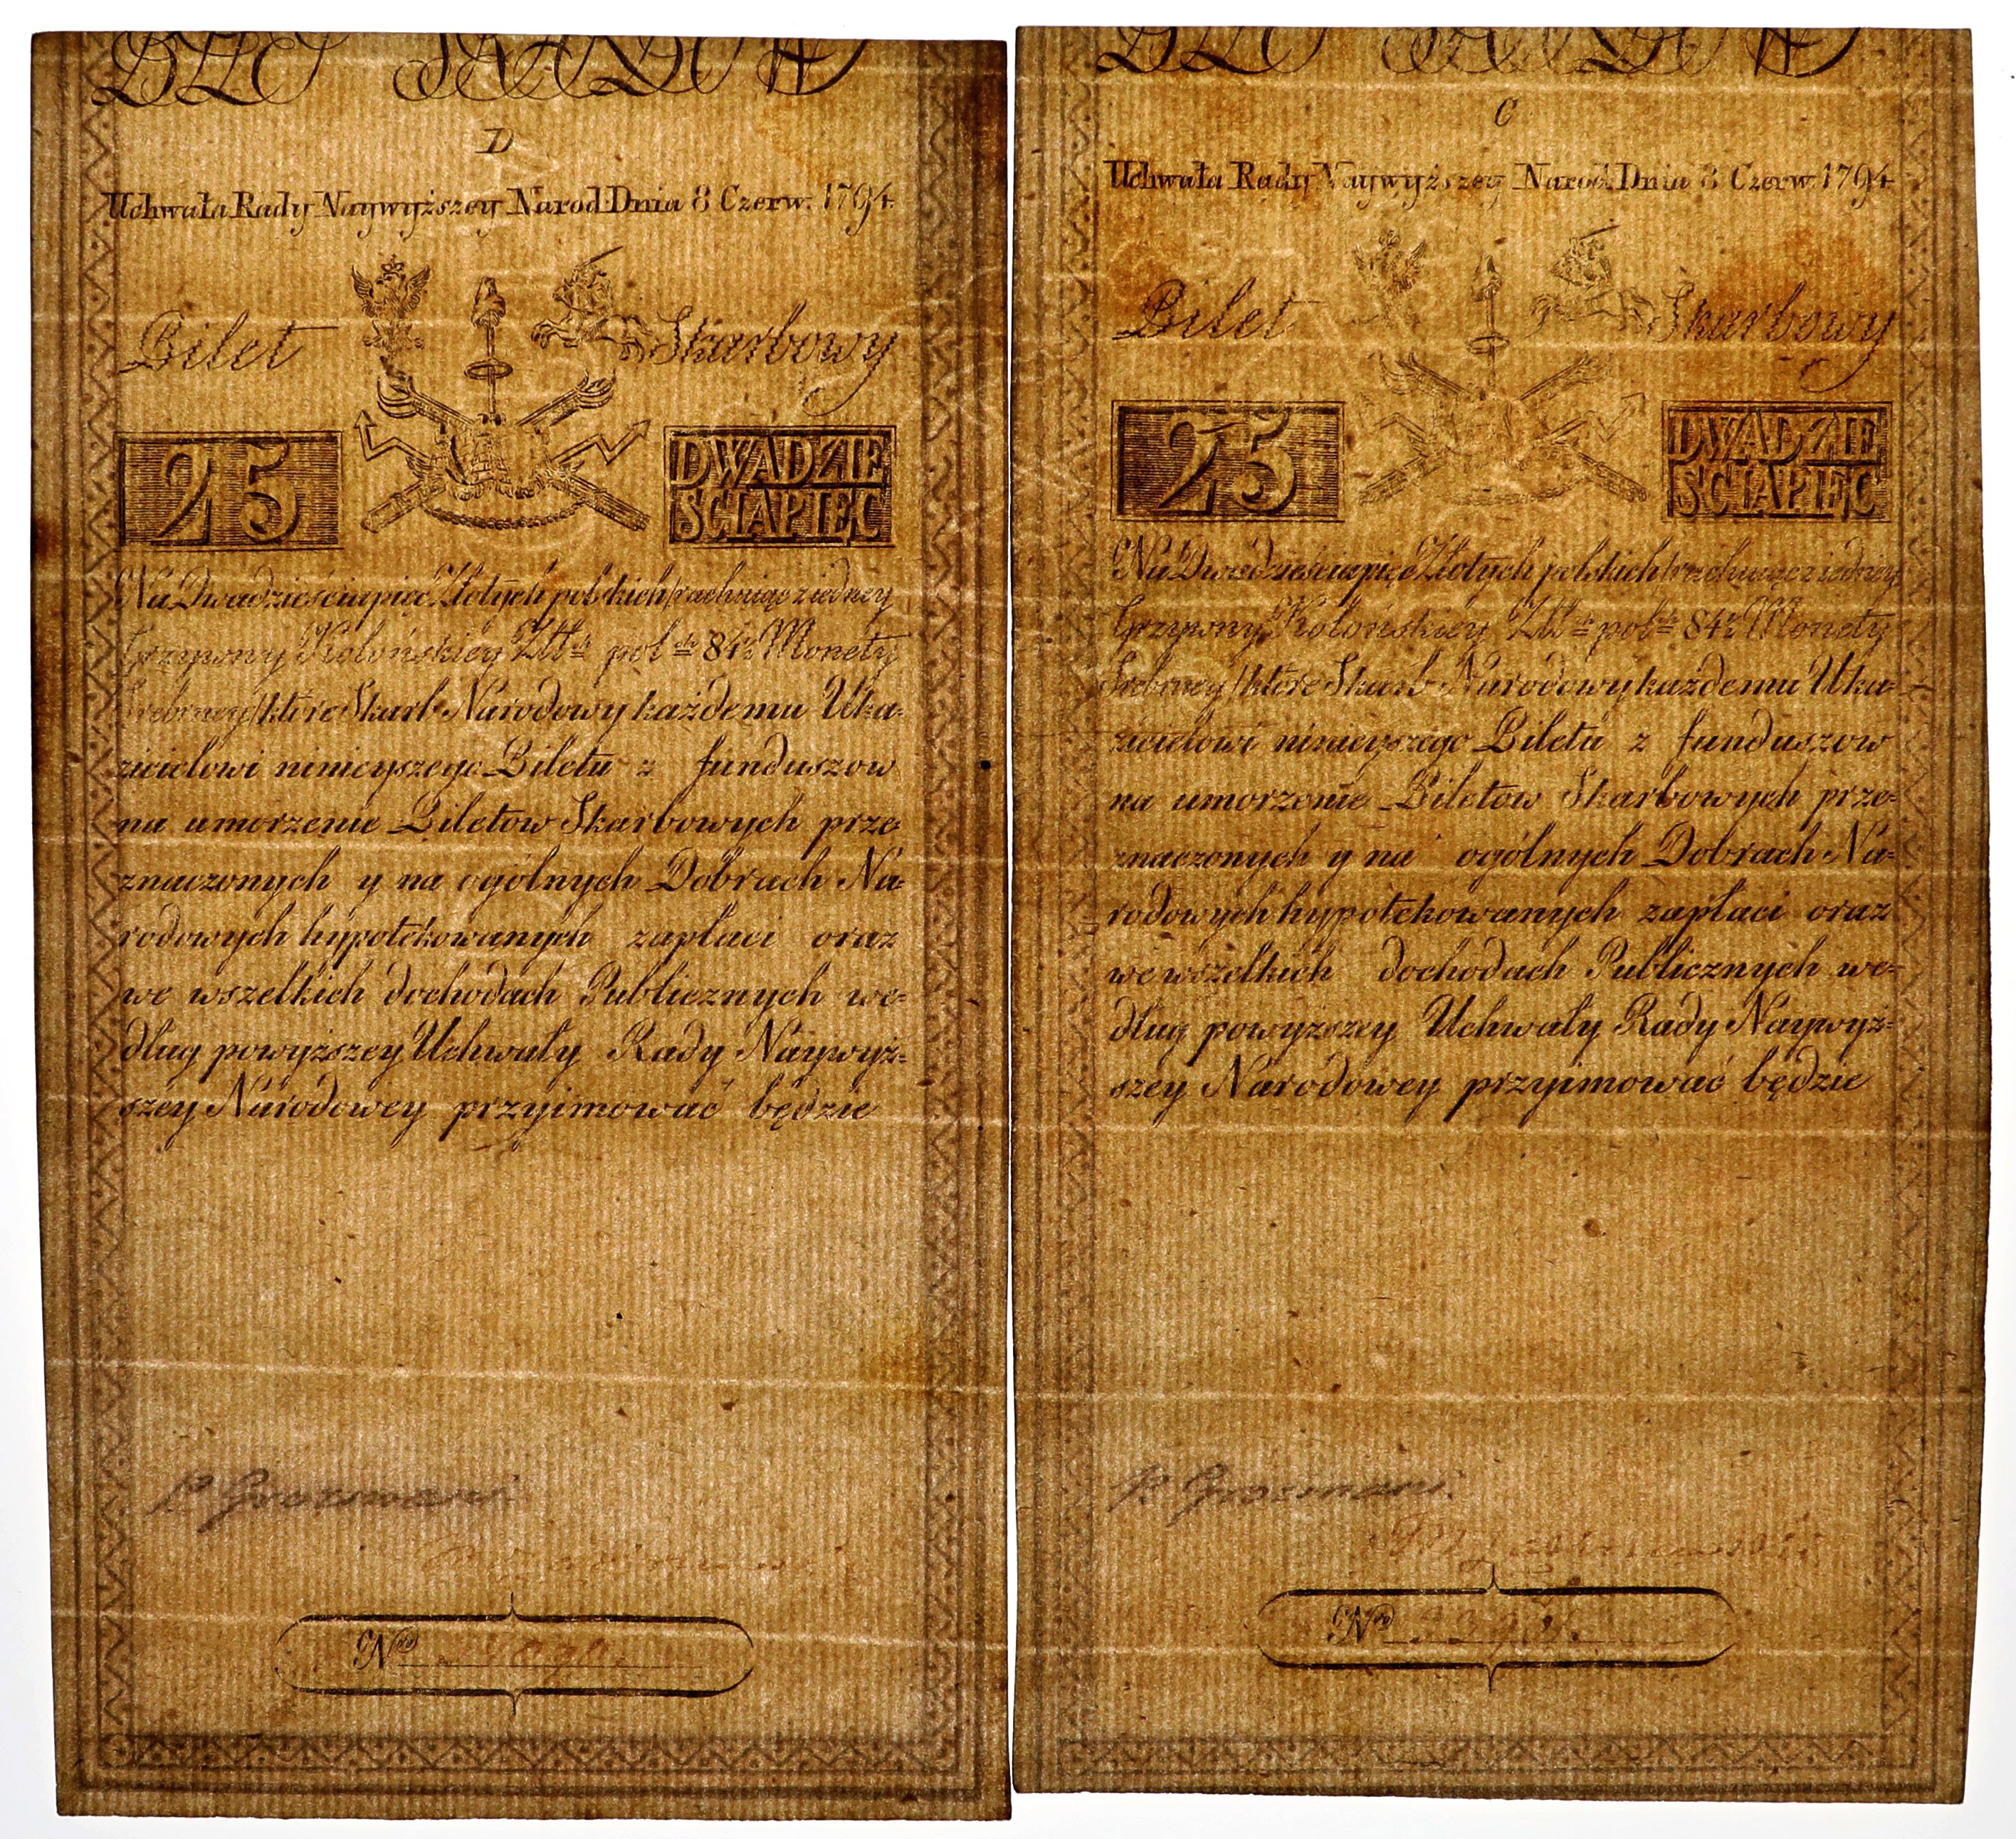 D
Uchwała Rady Naywyższey Narod: Dnia 8 Czerw. 1794.
Bilet Skarbowy
25 DWADZIE
SCIAPIĘC
Na Dwadzieścia pięć Złotych polskich /rachuiąc z iedney
Grzywny Kolońskiey Zttch polch 84½ Monety
Srebrney/ które Skarb Narodowy każdemu Uka-
zicielowi ninieyszego Biletu z funduszow
na umorzenie Biletow Skarbowych prze-
znaczonych y na ogólnych Dobrach Na-
rodowych hypotekowanych zapłaci oraz
we wszelkich dochodach Publicznych we-
dług powyższey Uchwały Rady Naywyż-
szey Narodowey przyimować będzie
Nro
C
Uchwała Rady Naywyższey Narod: Dnia 8 Czerw. 1794
Bilet Skarbowy
25 DWADZIE
SCIAPIĘC
Na Dwadzieścia pięć Złotych polskich /rachuiąc z iedney
Grzywny Kolońskiey Zttch polch 84½ Monety
Srebrney/ które Skarb Narodowy każdemu Uka-
zicielowi ninieyszego Biletu z funduszow
na umorzenie Biletow Skarbowych prze-
znaczonych y na ogólnych Dobrach Na-
rodowych hypotekowanych zapłaci oraz
we wszelkich dochodach Publicznych we-
dług powyższey Uchwały Rady Naywyż-
szey Narodowey przyimować będzie
Nro